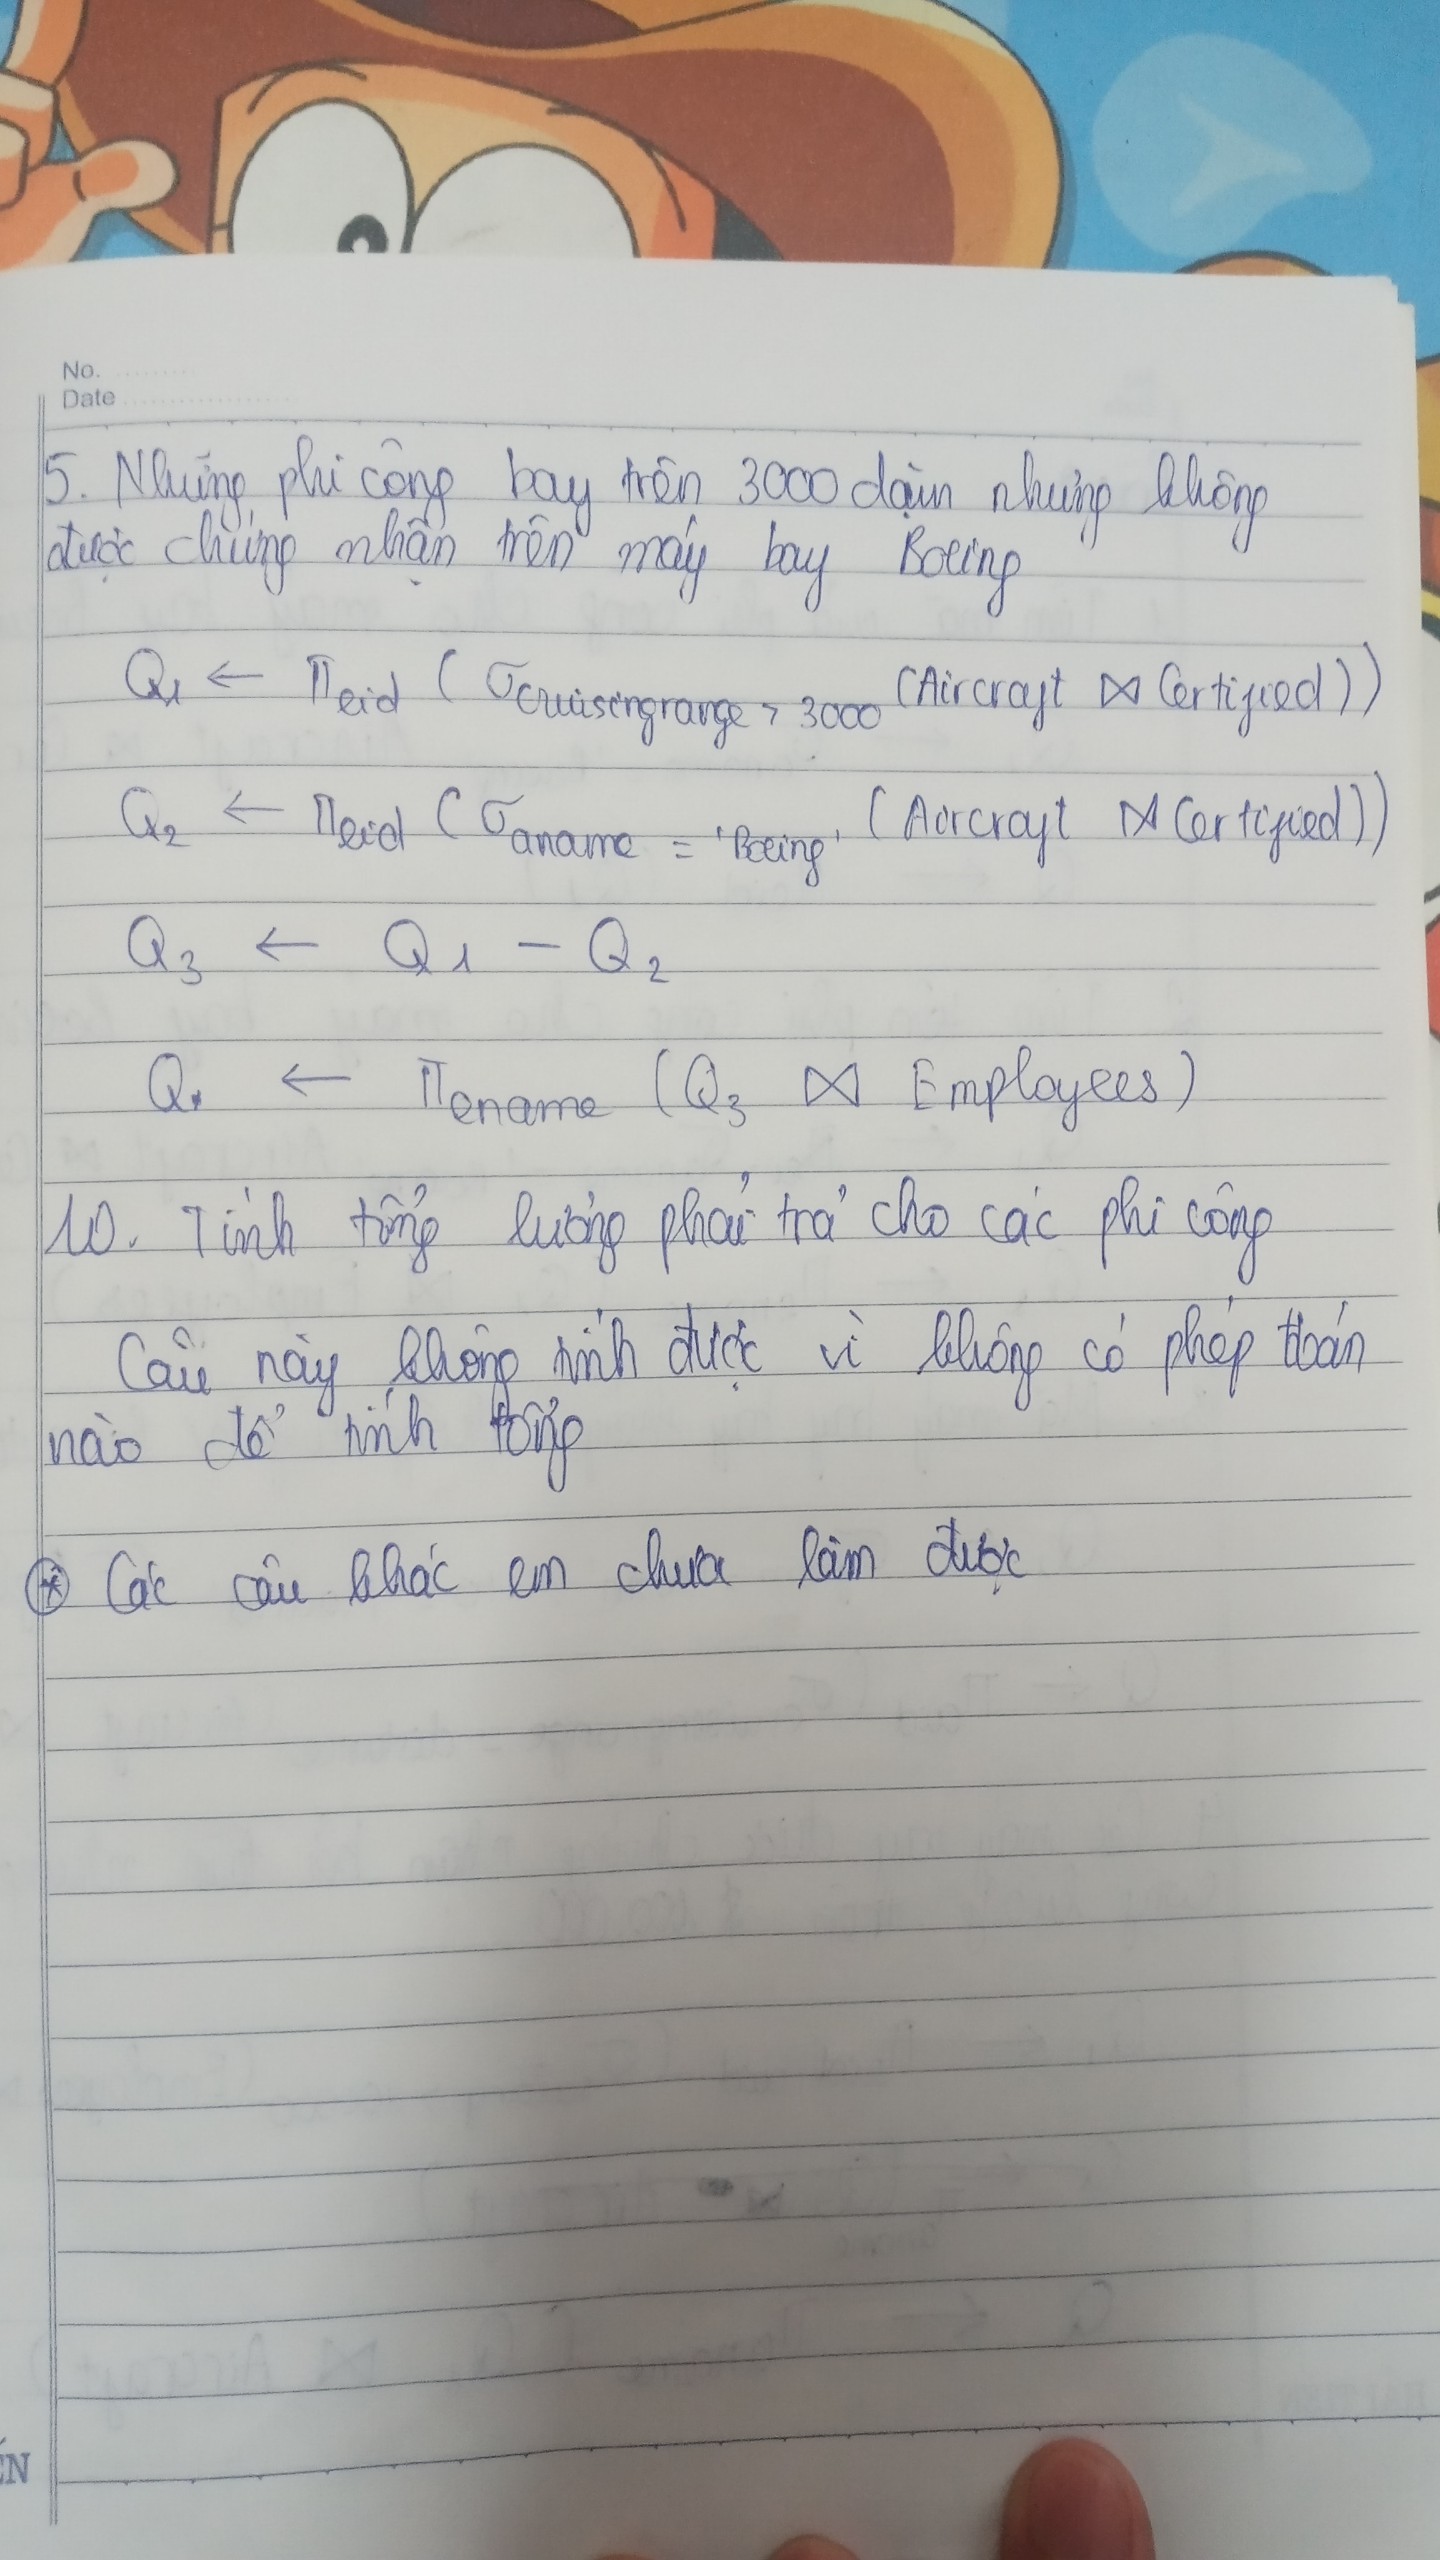 No.
Date
5. Những phi công bay trên 3000 dặm nhưng không
được chứng nhận trên máy bay Boeing
Q1 ← Πeid (σcruisingrange > 3000 (Aircraft ⋈ Certified))
Q2 ← Πeid (σaname = 'Boeing' (Aircraft ⋈ Certified))
Q3 ← Q1 − Q2
Q ← Πename (Q3 ⋈ Employees)
10. Tính tổng lương phải trả cho các phi công
Câu này không tính được vì không có phép toán
nào để tính tổng
* Các câu khác em chưa làm được